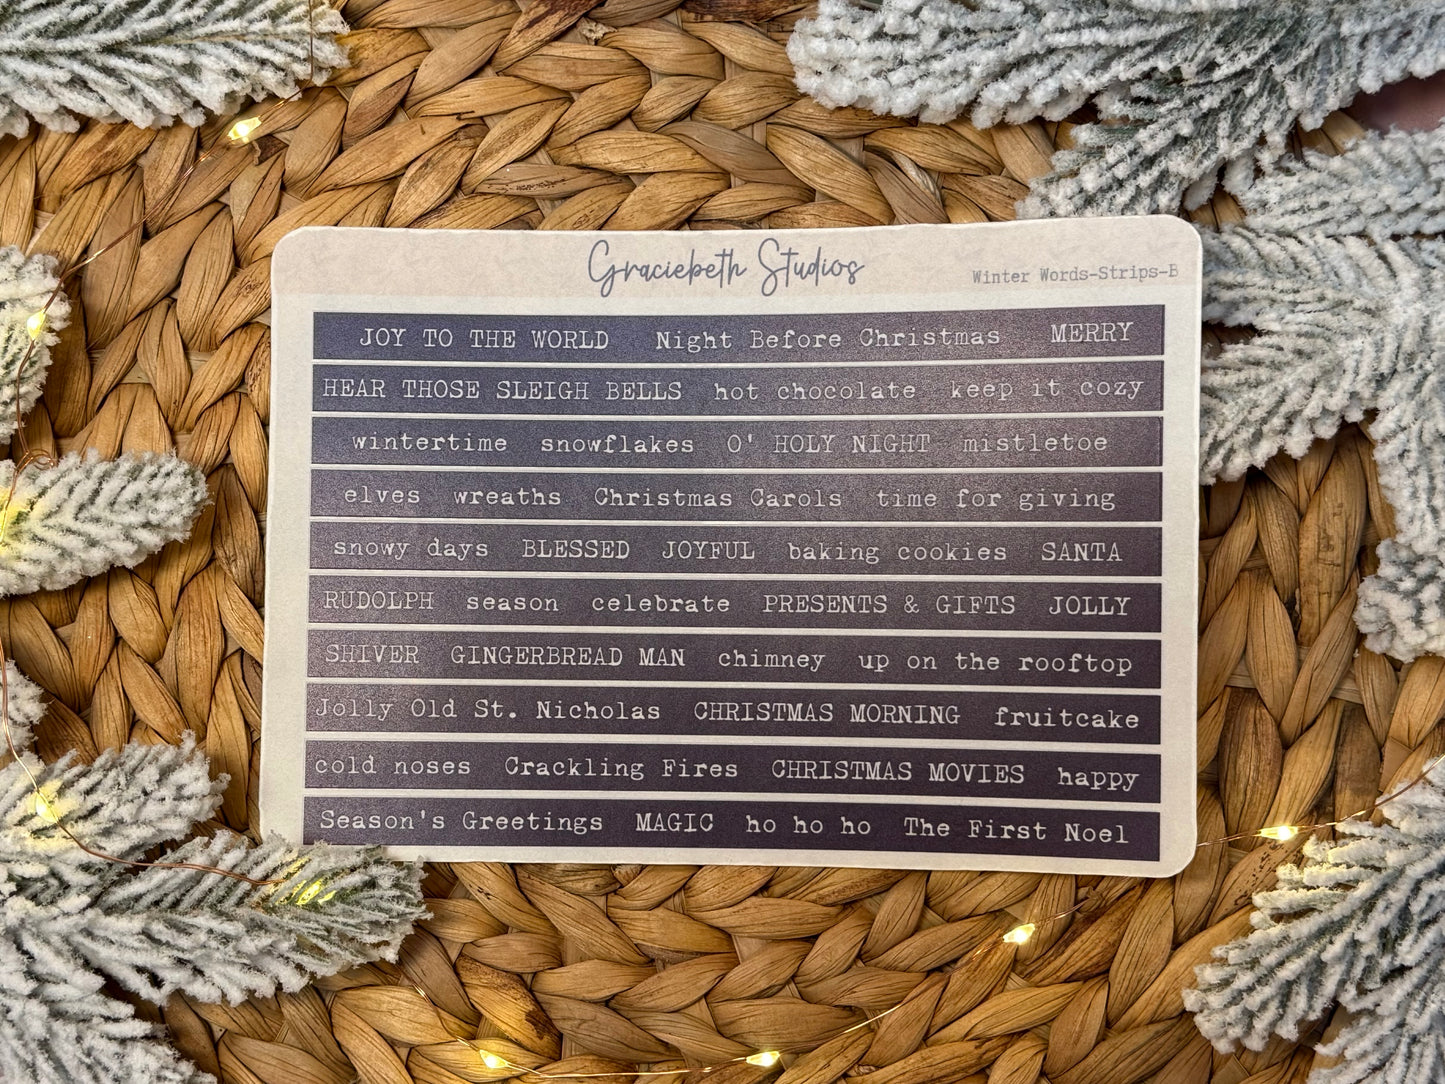 Graciebeth Studios
Winter Words-Strips-B
JOY TO THE WORLD Night Before Christmas MERRY
HEAR THOSE SLEIGH BELLS hot chocolate keep it cozy
wintertime snowflakes O' HOLY NIGHT mistletoe
elves wreaths Christmas Carols time for giving
snowy days BLESSED JOYFUL baking cookies SANTA
RUDOLPH season celebrate PRESENTS & GIFTS JOLLY
SHIVER GINGERBREAD MAN chimney up on the rooftop
Jolly Old St. Nicholas CHRISTMAS MORNING fruitcake
cold noses Crackling Fires CHRISTMAS MOVIES happy
Season's Greetings MAGIC ho ho ho The First Noel